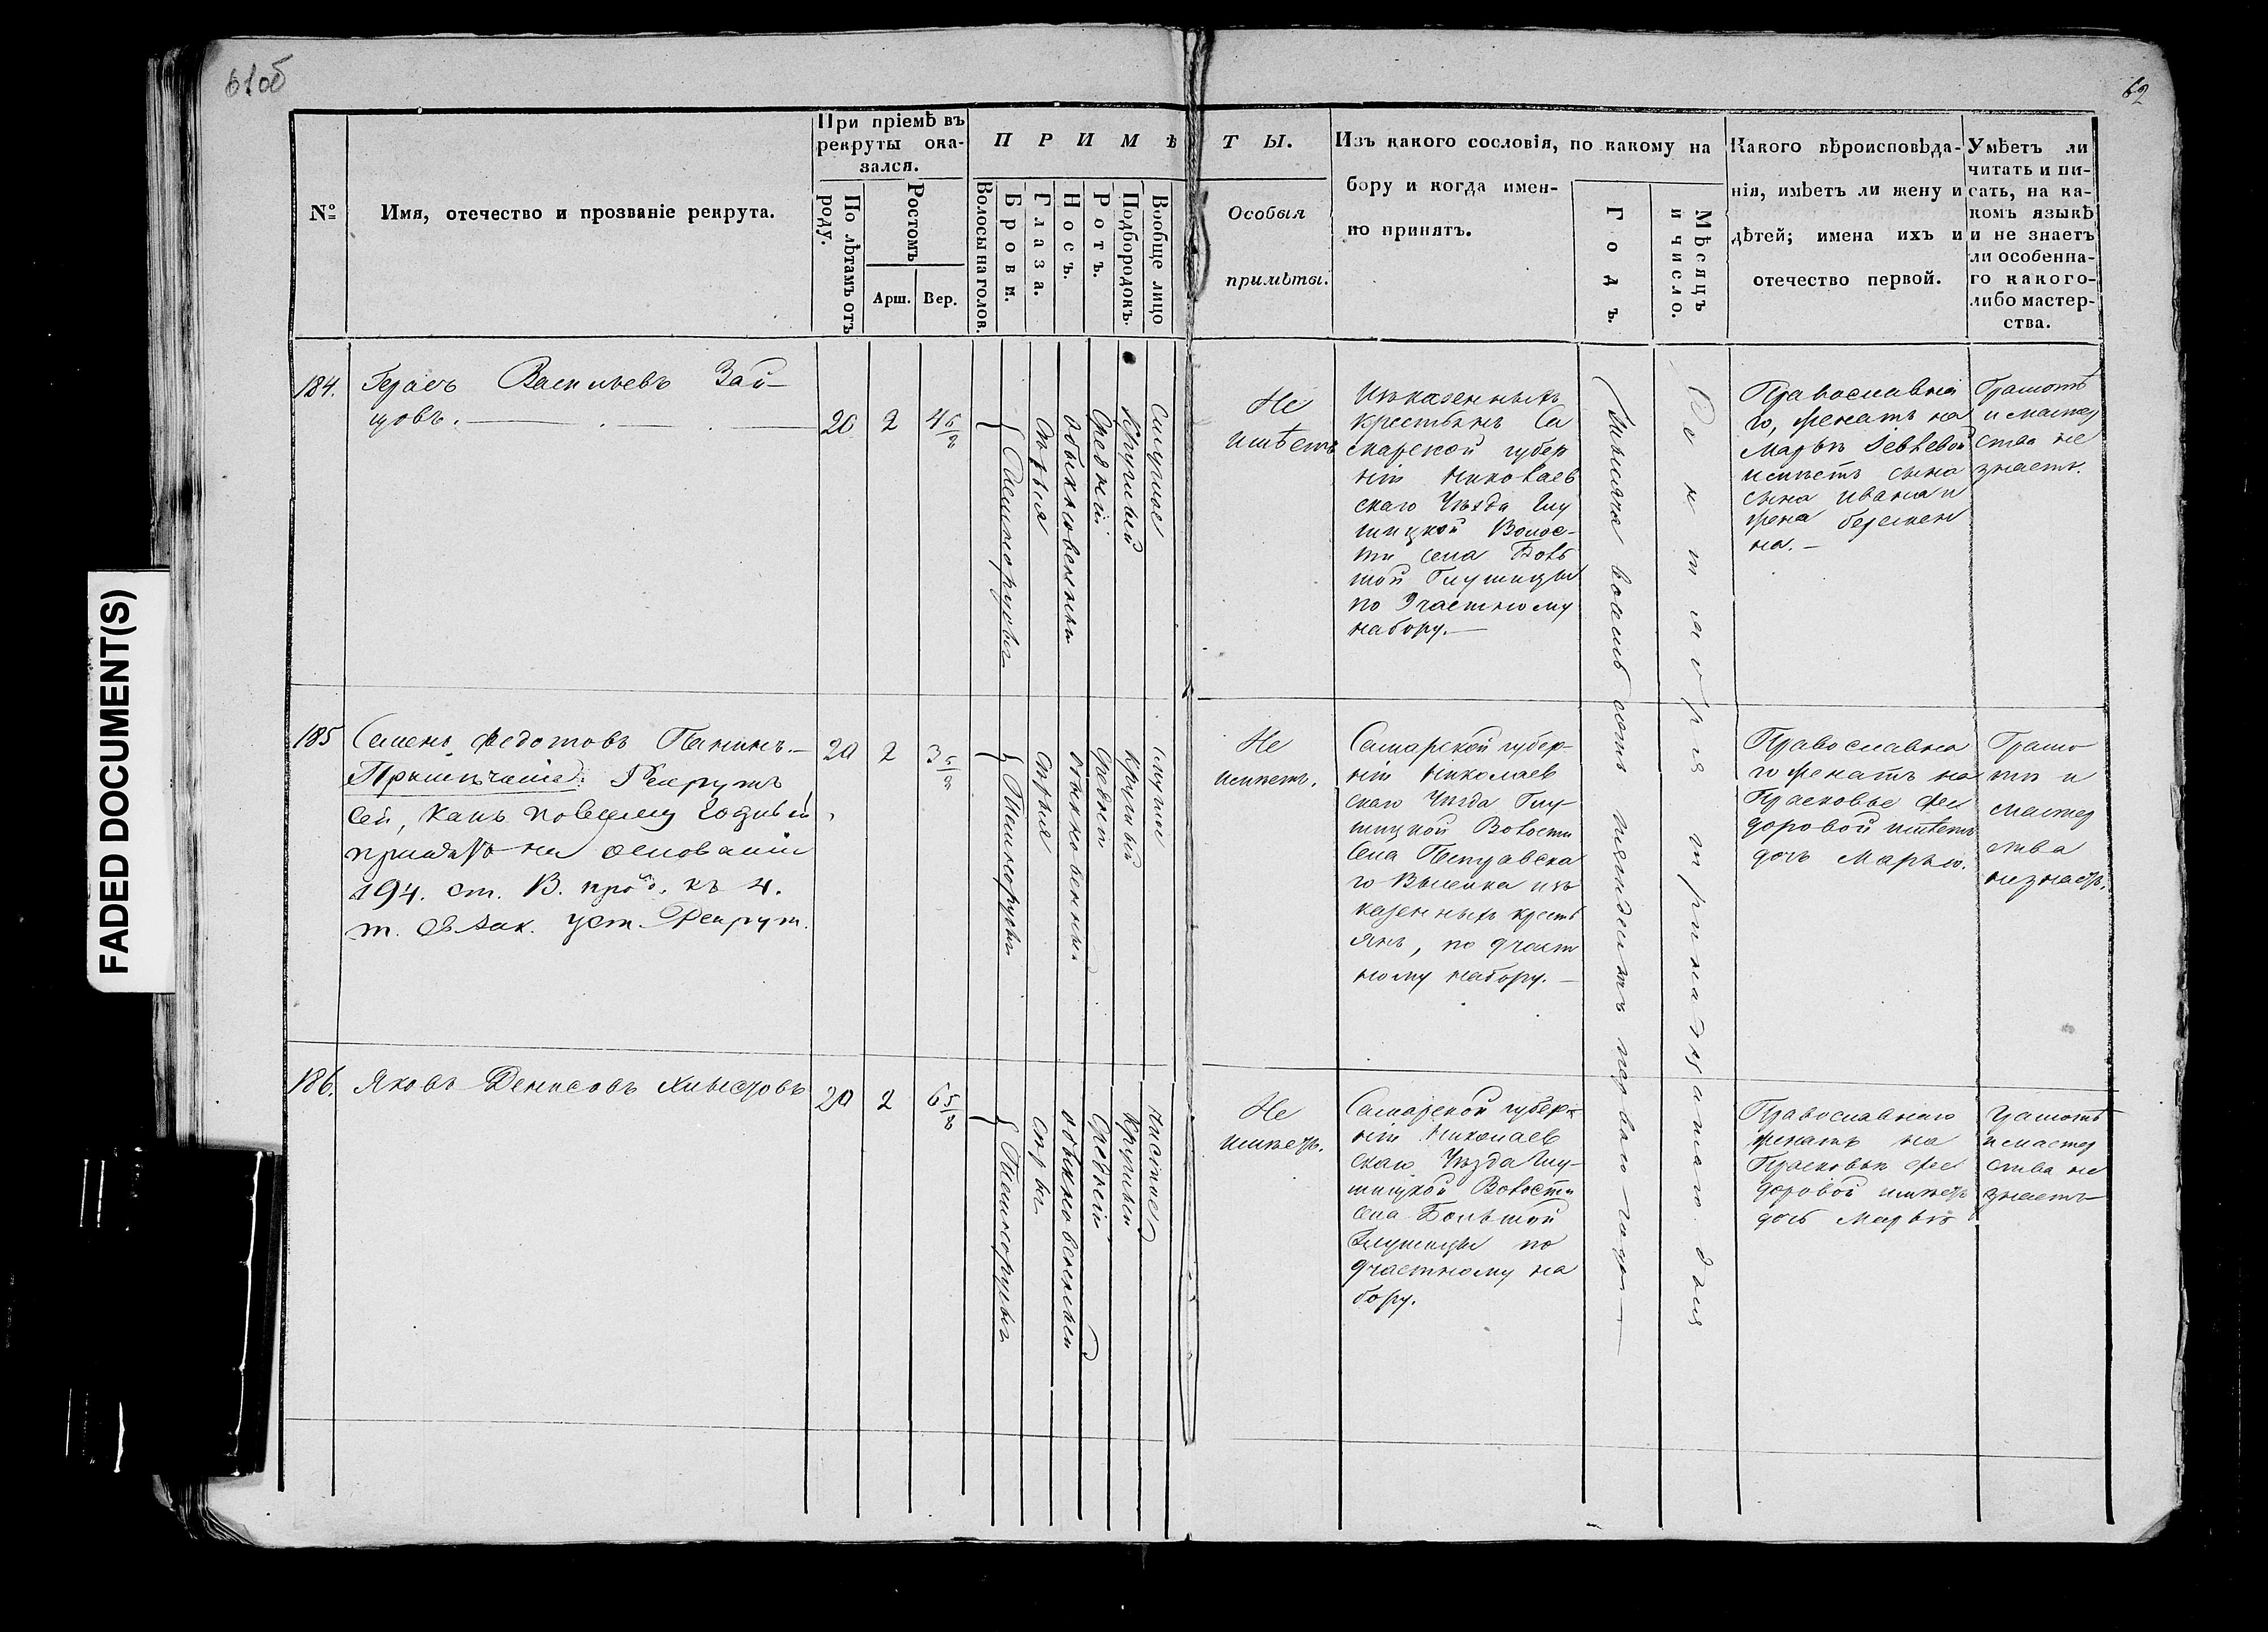 61об
62
FADED DOCUMENT(S)
№
Имя, отечество и прозваніе рекрута.
При пріемѣ въ
рекруты ока-
зался.
По лѣтамъ отъ
роду.
Ростомъ
Арш.
Вер.
ПРИМѢТЫ.
Волосы на голов.
Брови.
Глаза.
Носъ.
Ротъ.
Подбородокъ.
Вообще лицо
Особыя
примѣты.
Изъ какого сословія, по какому на
бору и когда имен-
но принятъ.
Годъ.
Мѣсяцъ
и число.
Какого вѣроисповѣда-
нія, имѣетъ ли жену и
дѣтей; имена ихъ и
отечество первой.
Умѣетъ ли
читать и пи-
сать, на ка-
комъ языкѣ
и не знаетъ
ли особенна-
го какого-
либо мастер-
ства.
184.
Герасъ Васильевъ Зай-
цовъ.
20
2
4 5/8
Темнорусыя
Сѣрыя
обыкновенный
Средній
Круглый
Смуглое
Не
имѣетъ
Изъ казенныхъ
крестьянъ Са
марской губер
ніи Николаев
скаго Уѣзда Глу
шицкой Волос-
ти села Боль
шой Глушицы
по Участному
набору.—
Тысяча восемь сотъ пятьдесятъ перваго года—
Октября тринадцатаго дня
Православна
го, женатъ на
Марьѣ
имѣетъ сына
сына Ивана и
жена беремен
на.—
Грамотѣ
и мастер
ства не
знаетъ.
185
Семенъ Федотовъ Панинъ.—
Примѣчаніе: Рекрутъ
сей, какъ повсему годный,
принятъ на основаніи
194. ст. В. прод. къ 4.
т. Св. Зак. уст. Рекрут.
20
2
3 5/8
Темнорусыя
Сѣрыя
обыкновенный
Средній
Круглый
Смуглое
Не
имѣетъ.
Самарской губер-
ніи Николаев
скаго Уѣзда Глу-
шицкой Волости
села
го Выселка изъ
казенныхъ кресть
янъ, по участ
ному набору.—
Православна
го женатъ на
Прасковье Фе
доровой имѣетъ
дочь Марью.
Грамо
тѣ и
мастер
ства
незнаетъ.
186.
Яковъ Денисовъ Хлыстовъ
20
2
6 5/8
Темнорусыя
Сѣрыя
обыкновенный
Средній
Круглый
Чистое
Не
имѣетъ.
Самарской губер-
ніи Николаев
скаго Уѣзда Глу-
шицкой Волости
села Большой
Глушицы по
участному на
бору.
Православнаго
женатъ на
Прасковьѣ Фе
доровой имѣетъ
дочь Марью
Грамотѣ
и мастер
ства не
знаетъ